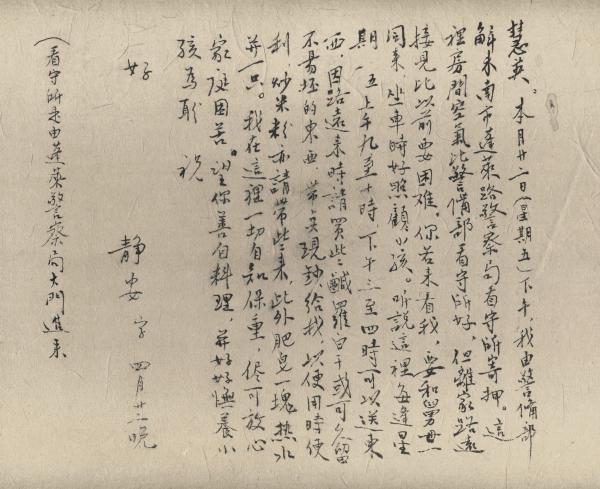 慧英。本月廿二日(星期五)下午，我由警備部
解來南市蓬萊路警察局看守所寄押。這
裡房間空氣比警備部看守所好，但離家路遠
接見比以前要困難，你若來看我，要和舅母一
同來，坐車時好照顧小孩。听說這裡每逢星
期一、五上午九至十時下午三至四時可以送東
西，因路遠來時請買些鹹蘿白干或可久留
不易坯的東西，帶点現鈔給我以便用時便
利，炒米粉亦請帶些來，此外肥皂一塊熱水
一只。我在這裡一切自知保重，侭可放心
家庭困苦。望你善自料理，并好好撫養小
孩為盼 祝
好
靜安字 四月廿二晚
(看守所是由蓬萊警察局大門進來